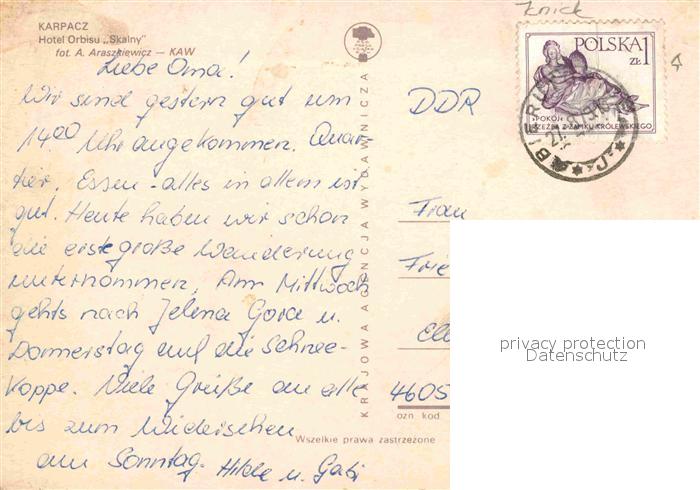 KARPACZ
Hotel Orbisu „Skalny"
fot. A. Araszkiewicz — KAW
Liebe Oma!
Wir sind gestern gut um
14.00 Uhr angekommen. Quar-
tier, Essen - alles in allem ist
gut. Heute haben wir schon
die erste große Wanderung
unternommen, Am Mittwoch
gehts nach Jelena Gora u.
Donnerstag auf die Schnee-
koppe. Viele Grüße an alle
bis zum Wiedersehen
am Sonntag. Hilde u. Gabi
KRAJOWA AGENCJA WYDAWNICZA
Knick
POLSKA 1
ZŁ
„POKÓJ"
RZEŹBA Z ZAMKU KRÓLEWSKIEGO
DDR
Frau
Frie
4605
ozn kod
Wszelkie prawa zastrzeżone
privacy protection
Datenschutz